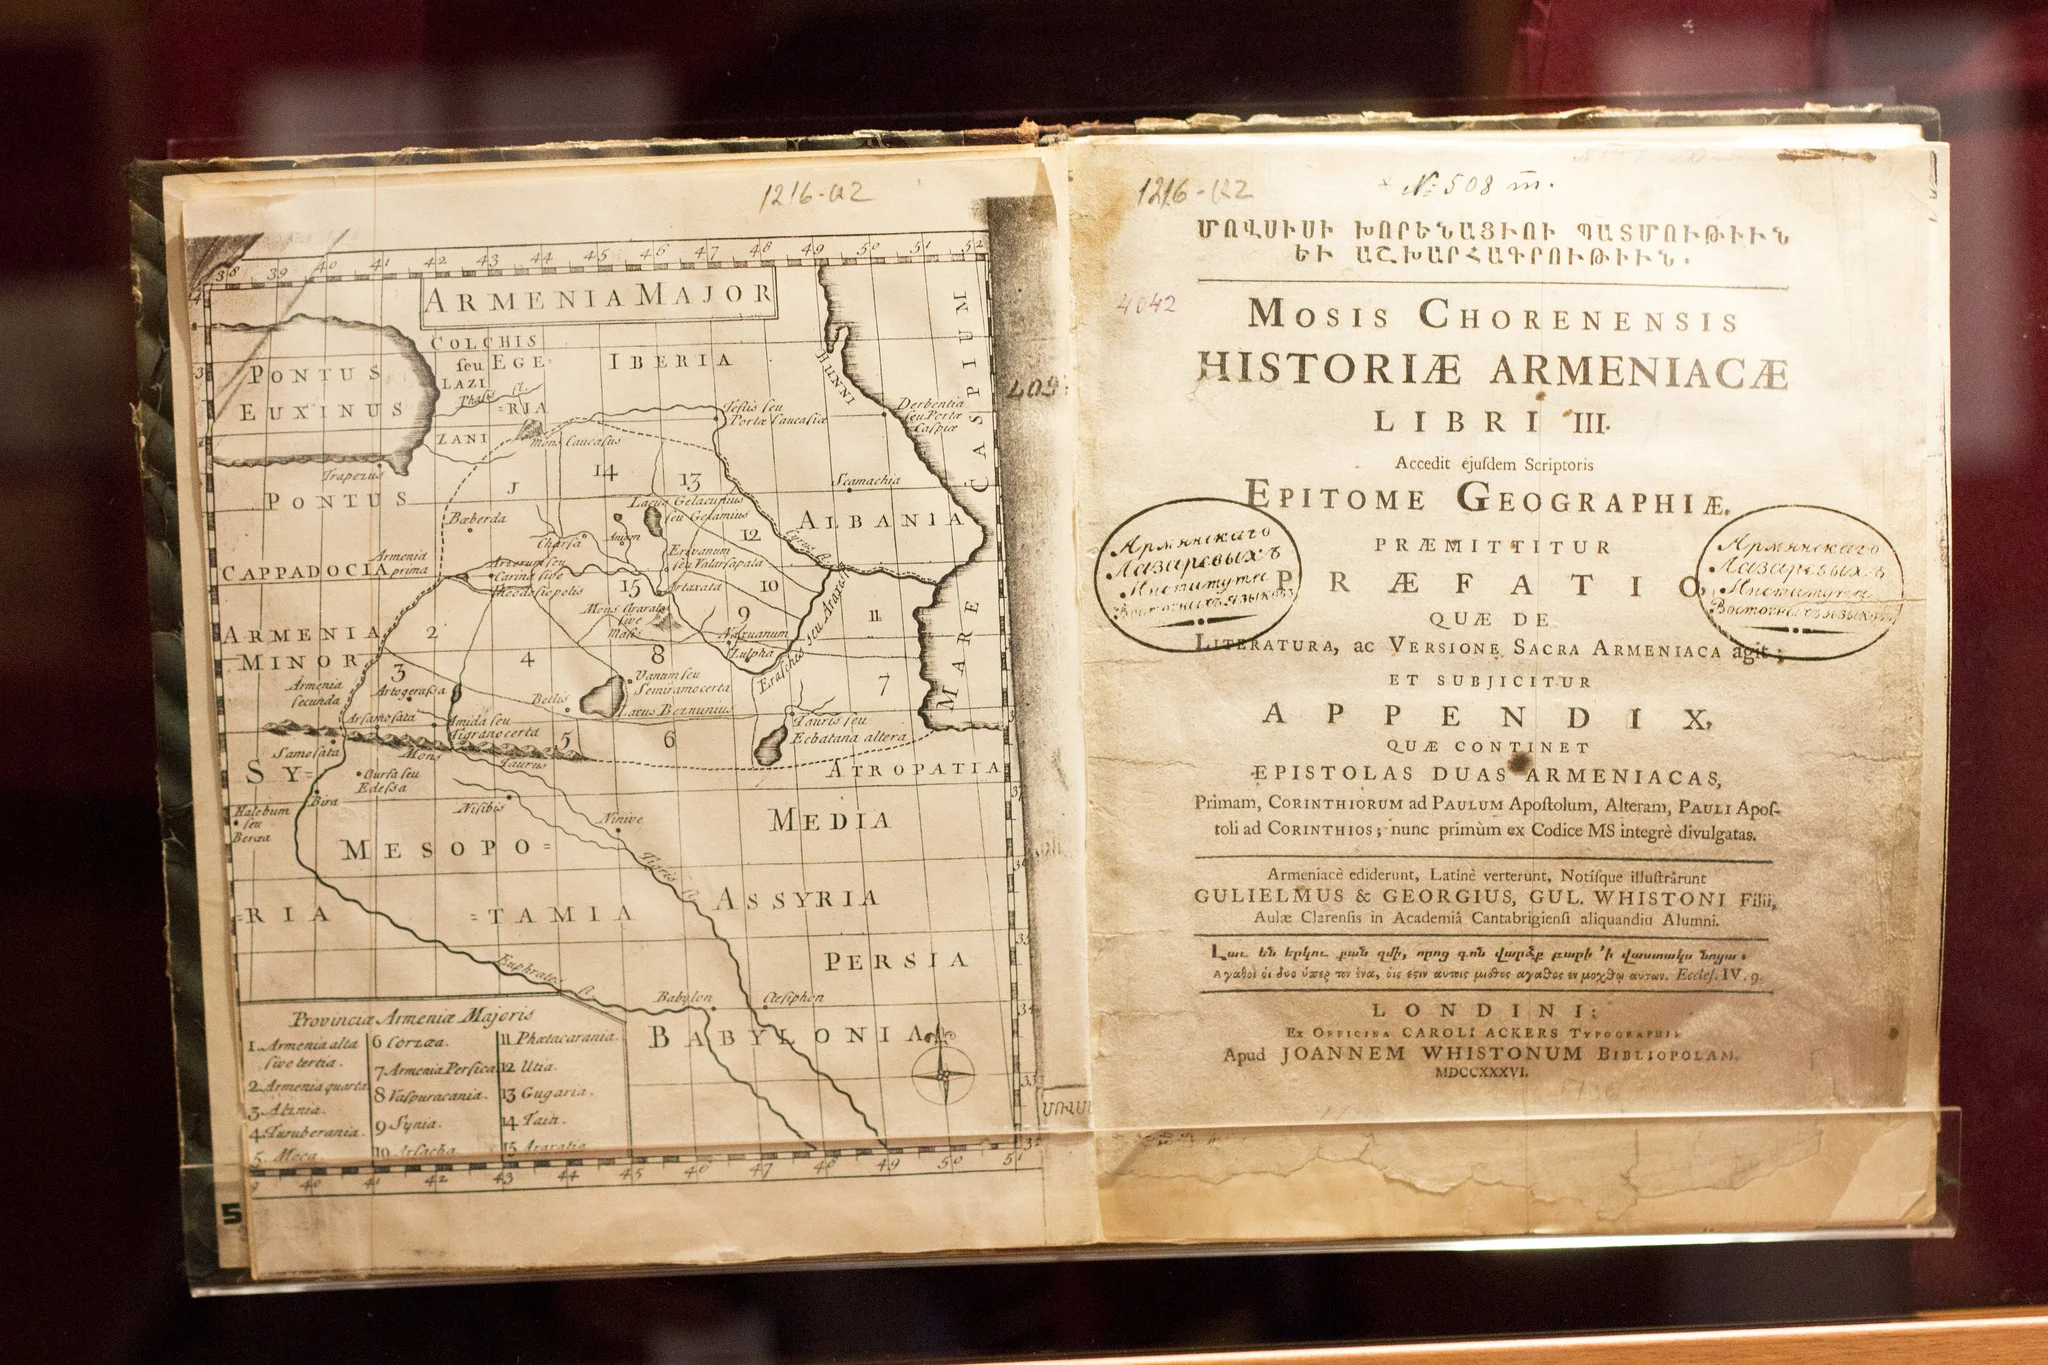 1216-Q2
38 39 40 41 42 43 44 45 46 47 48 49 50 51 52
ARMENIA MAJOR
COLCHIS
ſeu EGE-
LAZI
Phaſis fl.
=RIA
IBERIA
HUNNI
PONTUS
EUXINUS
ZANI
Mons Caucaſus
Porta Caucaſiæ
Derbentia
ſeu Porta
Caſpiæ
MARE CASPIUM
Trapezus
PONTUS
14
13
Scamachia
Lacus Gelacunius
ſeu Gelamius
ALBANIA
Baberda
1
Charſa
Anium
12
Cyrus fl.
Armenia
prima
CAPPADOCIA
Carina ſive
Theodoſiopolis
Erivanum
ſeu Valarſapata
15
Artaxata
10
Mons Ararat
ſive
Maſis
9
11
Naxuanum
Iulpha
Eraſches ſeu Araxes
ARMENIA
MINOR
2
3
4
8
7
Armenia
ſecunda
Artogeraſsa
Bellis
Vanum ſeu
Semiramocerta
Lacus Beznunius
Arſamoſata
Amida ſeu
Tigranocerta
5
6
Tauris ſeu
Ecbatana altera
Samoſata
Mons
Taurus
ATROPATIA
SY=
Ourfa ſeu
Edeſsa
Bira
Niſibis
Halebum
ſeu
Beræa
Ninive
MEDIA
MESOPO=
Tigris fl.
ASSYRIA
=RIA
=TAMIA
PERSIA
Euphrates fl.
Babylon
Cteſiphon
BABYLONIA
Provinciæ Armeniæ Majoris
1. Armenia alta
ſive tertia.
2 Armenia quarta
3 Alznia.
4 Turuberania.
5. Moca.
6 Corzæa.
7 Armenia Perſica
8 Vaſpuracania.
9 Synia.
10 Arſacha
11 Phætacarania.
12 Utia.
13 Gugaria.
14 Tain.
15 Araratia
40 41 42 43 44 45 46 47 48 49 50 51
5
1216-Q2
№ 508 m.
ՄՈՎՍԻՍԻ ԽՈՐԵՆԱՑԻՈՒ ՊԱՏՄՈՒԹԻՒՆ
ԵՒ ԱՇԽԱՐՀԱԳՐՈՒԹԻՒՆ.
4042
MOSIS CHORENENSIS
HISTORIÆ ARMENIACÆ
LIBRI III.
Accedit ejuſdem Scriptoris
EPITOME GEOGRAPHIÆ.
PRÆMITTITUR
PRÆFATIO
QUÆ DE
LITERATURA, ac VERSIONE SACRA ARMENIACA agit;
ET SUBJICITUR
APPENDIX,
QUÆ CONTINET
EPISTOLAS DUAS ARMENIACAS,
Primam, CORINTHIORUM ad PAULUM Apoſtolum, Alteram, PAULI Apoſ-
toli ad CORINTHIOS; nunc primùm ex Codice MS integrè divulgatas.
Армянскаго
Лазаревыхъ
Института
Восточныхъ языковъ
Армянскаго
Лазаревыхъ
Института
Восточныхъ языковъ
Armeniacè ediderunt, Latinè verterunt, Notiſque illuſtrârunt
GULIELMUS & GEORGIUS, GUL. WHISTONI Filii,
Aulæ Clarenſis in Academiâ Cantabrigienſi aliquandiu Alumni.
Լաւ են երկու քան զմի, որոց գոն վարձք բարի ՚ի վաստակս նոցա:
Αγαθοὶ οἱ δυο ὑπερ τον ἕνα, οἷς εςιν αυτοις μισθος αγαθος εν μοχθῳ αυτων. Eccleſ. IV. 9.
LONDINI:
Ex OFFICINA CAROLI ACKERS TYPOGRAPHI;
Apud JOANNEM WHISTONUM BIBLIOPOLAM.
MDCCXXXVI.
1736